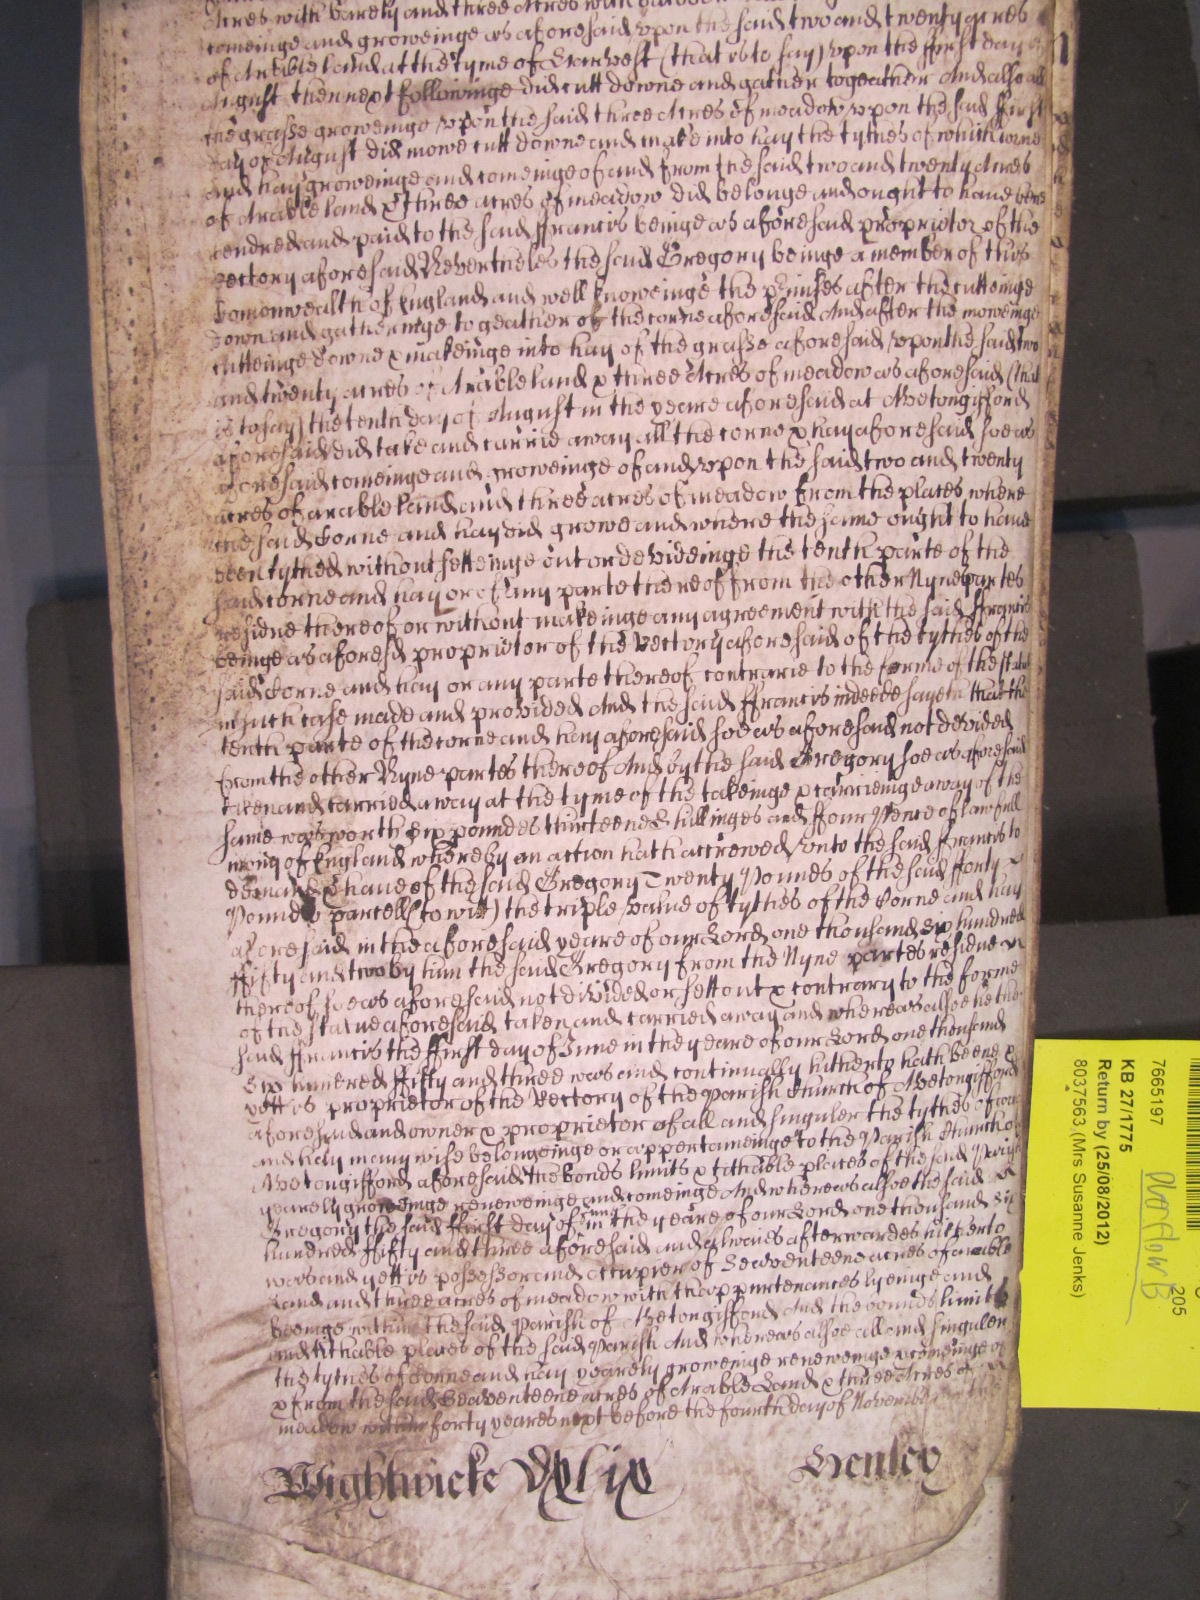 Acres with Barely and three Acres with
comeinge and groweinge as aforesaid upon the said two and twenty acres
of Arrable land at the tyme of Harvest (that is to say) upon the ffirst day of
August then next followinge did cutt downe and gather togeather And also all
the grasse groweinge upon the said three Acres of meadow upon the said ffirst
day of August did mowe cutt downe and make into hay the tythes of which corne
and hay groweinge and comeinge of and from the said two and twenty Acres
of Arrable land & three acres of meadow did belonge and ought to have bene
rendred and paid to the said ffrancis beinge as aforesaid proprietor of the
Rectory aforesaid Neverthelesse the said Gregory beinge a member of this
Comonwealth of England and well knoweinge the p'misses after the cutteinge
downe and gatheringe togeather of the corne aforesaid And after the moweinge
cutteinge downe & makeinge into hay of the grasse aforesaid upon the said two
and twenty acres of Arrable land & three Acres of meadow as aforesaid (that
is to say) the tenth day of August in the yeare aforesaid at Abetongifford
aforesaid did take and carrie away all the corne & hay aforesaid soe as
aforesaid comeinge and groweinge of and upon the said two and twenty
acres of arrable land and three acres of meadow from the places where
the said Corne and hay did growe and where the same ought to have
been tythed without setteinge out or devideinge the tenth parte of the
said corne and hay or of any parte thereof from the other Nyne partes
residue thereof or without makeinge any agreement with the said ffrancis
beinge as aforesd proprietor of the Rectory aforesaid of the tythes of the
said Corne and hay or any parte thereof contrarie to the forme of the statute
in such case made and provided And the said ffrancis indeede sayeth that the
tenth parte of the corne and hay aforesaid soe as aforesaid not devided
from the other Nyne partes thereof And by the said Gregory soe as aforesaid
taken and carried away at the tyme of the takeinge & carrieinge away of the
same was worth Six poundes thirteene shillinges and ffour Pence of lawfull
mony of England whereby an action hath accrewed unto the said ffrancis to
demand & have of the said Gregory Twenty Pounds of the said fforty
Pounds parcell (to witt) the triple value of tythes of the Corne and hay
aforesaid in the aforesaid yeare of our Lord one thousand Six hundred
ffifty and two by him the said Gregory from the Nyne partes residue
thereof soe as aforesaid not divided or sett out & contrary to the forme
of the statue aforesaid taken and carried away and whereas alsoe he the
said ffrancis the ffirst day of June in the yeare of our Lord one thousand
Six hundred ffifty and three was and continually hitherto hath beene &
yett is proprietor of the Rectory of the Parish Church of Abetongifford
aforesaid and owner & proprietor of all and singuler the tythes of corne
and hay in any wise belongeinge or appertaineinge to the Parish Church of
Abetongifford aforesaid the bonds limits & tithable places of the said Parish
yearely groweinge reneweinge and comeinge And whereas alsoe the said
Gregory the said ffirst day of June in the yeare of our Lord one thousand Six
hundred ffifty and three aforesaid and alwaies afterwardes hitherto
was and yett is possessor and occupier of Seaventeene acres of arrable
Land and three acres of meadow with thappurtenances lyeinge and
beeinge within the said Parish of Abetongifford And the bounds limitts
and tithable places of the said Parish And whereas alsoe all and singuler
the tythes of Corne and hay yearely groweinge reneweinge & comeinge of
& from the said Seaventeene acres of Arrable Land & three Acres of
meadow within forty yeares next before the fourth day of November
Wightwicke Dxlix Henley
7665197
KB 27/1775
Return by (25/08/2012)
8037563 (Mrs Susanne Jenks)
205